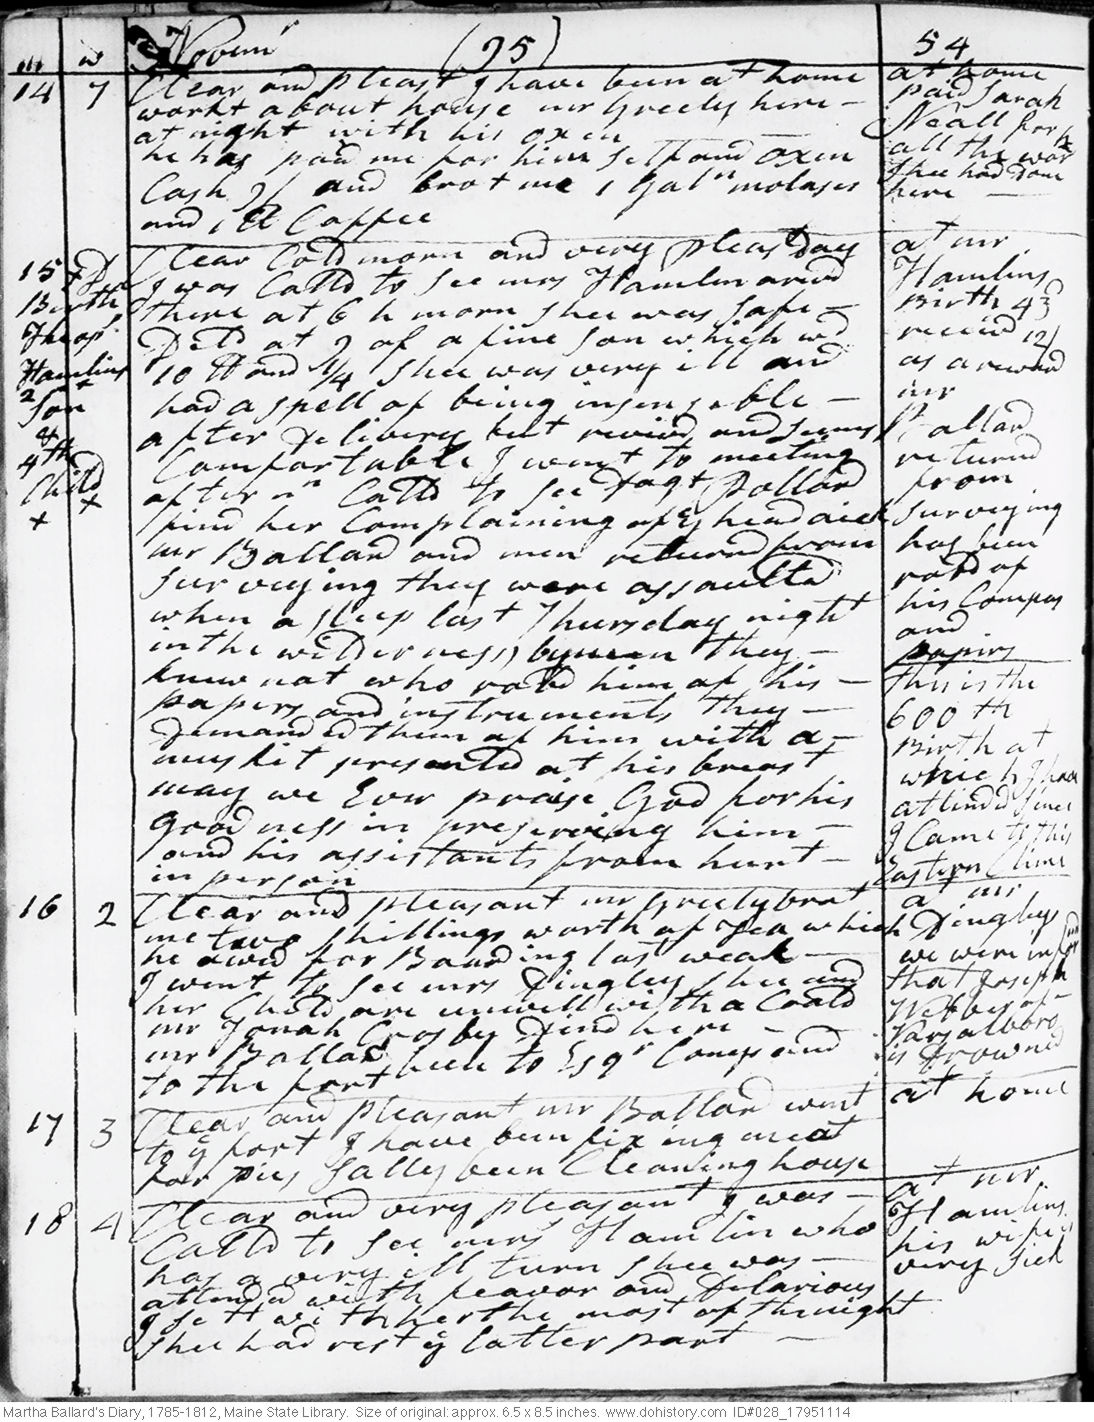 m w Novemr (95) 54
14 7 Clear and pleast I have been at home
workt about house mr Greely here –
at night with his oxen
he has paid me for him self and oxen
Cash 9/ and brot me 1 Galn molases
and 1 lb Coffee
at home
paid Sarah
Neall for
all the work
shee had done
here –
15 D
Birth
Theops
Hamlins
2 son
&
4th
Child
+ +
Clear Cold morn and very pleast Day
I was Calld to see mrs Hamlin arivd
there at 6 h morn shee was safe –
Deld at 9 of a fine son which wd
10 lb and 1/4 shee was very ill and
had a spell of being insenseble –
after Delivery but revivd and seems
Comfortable I went to meeting
after nn Calld to see Dagt Pollard
find her Complaining of ye head aick
mr Ballard and men returnd from
surveying they were assaulted
when a sleep last Thursday night
in the wilderness by men they –
knew not who robd him of his –
papers and instruments they –
Demanded them of him with a –
muskit presented at his breast
may we Ever praise God for his
goodness in preserveing him –
and his assistants from hurt –
in person
at mr
Hamlins
Birth 43
receivd 12/
as a reward
mr
Ballard
returnd
from
surveying
has been
robd of
his Compas
and
papirs
this is the
600th
Birth at
which I have
attinded since
I Came to this
Eastern Clime
16 2 Clear and pleasant mr Greely brot
me two shillings worth of Tea which
he owed for Boarding last weak –
I went to see mrs Dingley shee and
her Child are unwell with a Coald
mr Jonah Crosby Dind here –
mr Ballard been to Esqr Comys and
to the fort
at mr
Dingleys
we were in
that Joseph
Webber of –
Varsalboro
is Drownd
17 3 Clear and pleasant mr Ballard went
to ye fort I have been fixing meat
for pies Sally been Cleaning house
at home
18 4 Clear and very pleasant I was –
Calld to see mrs Hamlin who
has a very ill turn shee was –
attended with feavor and Delarious
I sett with her the most of the night
shee had rest ye latter part –
at mr
Hamlins
his wife
very sick
Martha Ballard's Diary, 1785-1812, Maine State Library. Size of original: approx. 6.5 x 8.5 inches. www.dohistory.com ID#028_17951114